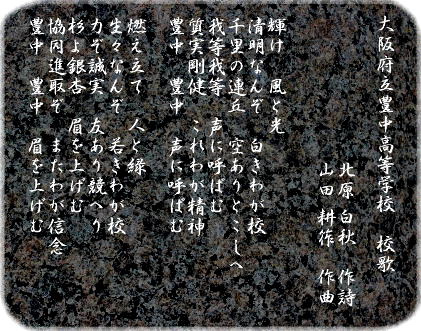 大阪府立豊中高等学校 校歌
北原 白秋 作詩
山田 耕筰 作曲
輝け 風と光
清明なんぞ 白きわが校
千里の連丘 空ありとこしへ
我等我等 声に呼ばむ
質実剛健 これわが精神
豊中 豊中 声に呼ばむ
燃え立て 人と緑
生々なんぞ 若きわが校
力ぞ誠実 友あり競へり
杉よ銀杏 眉を上げむ
協同進取ぞ またわが信念
豊中 豊中 眉を上げむ